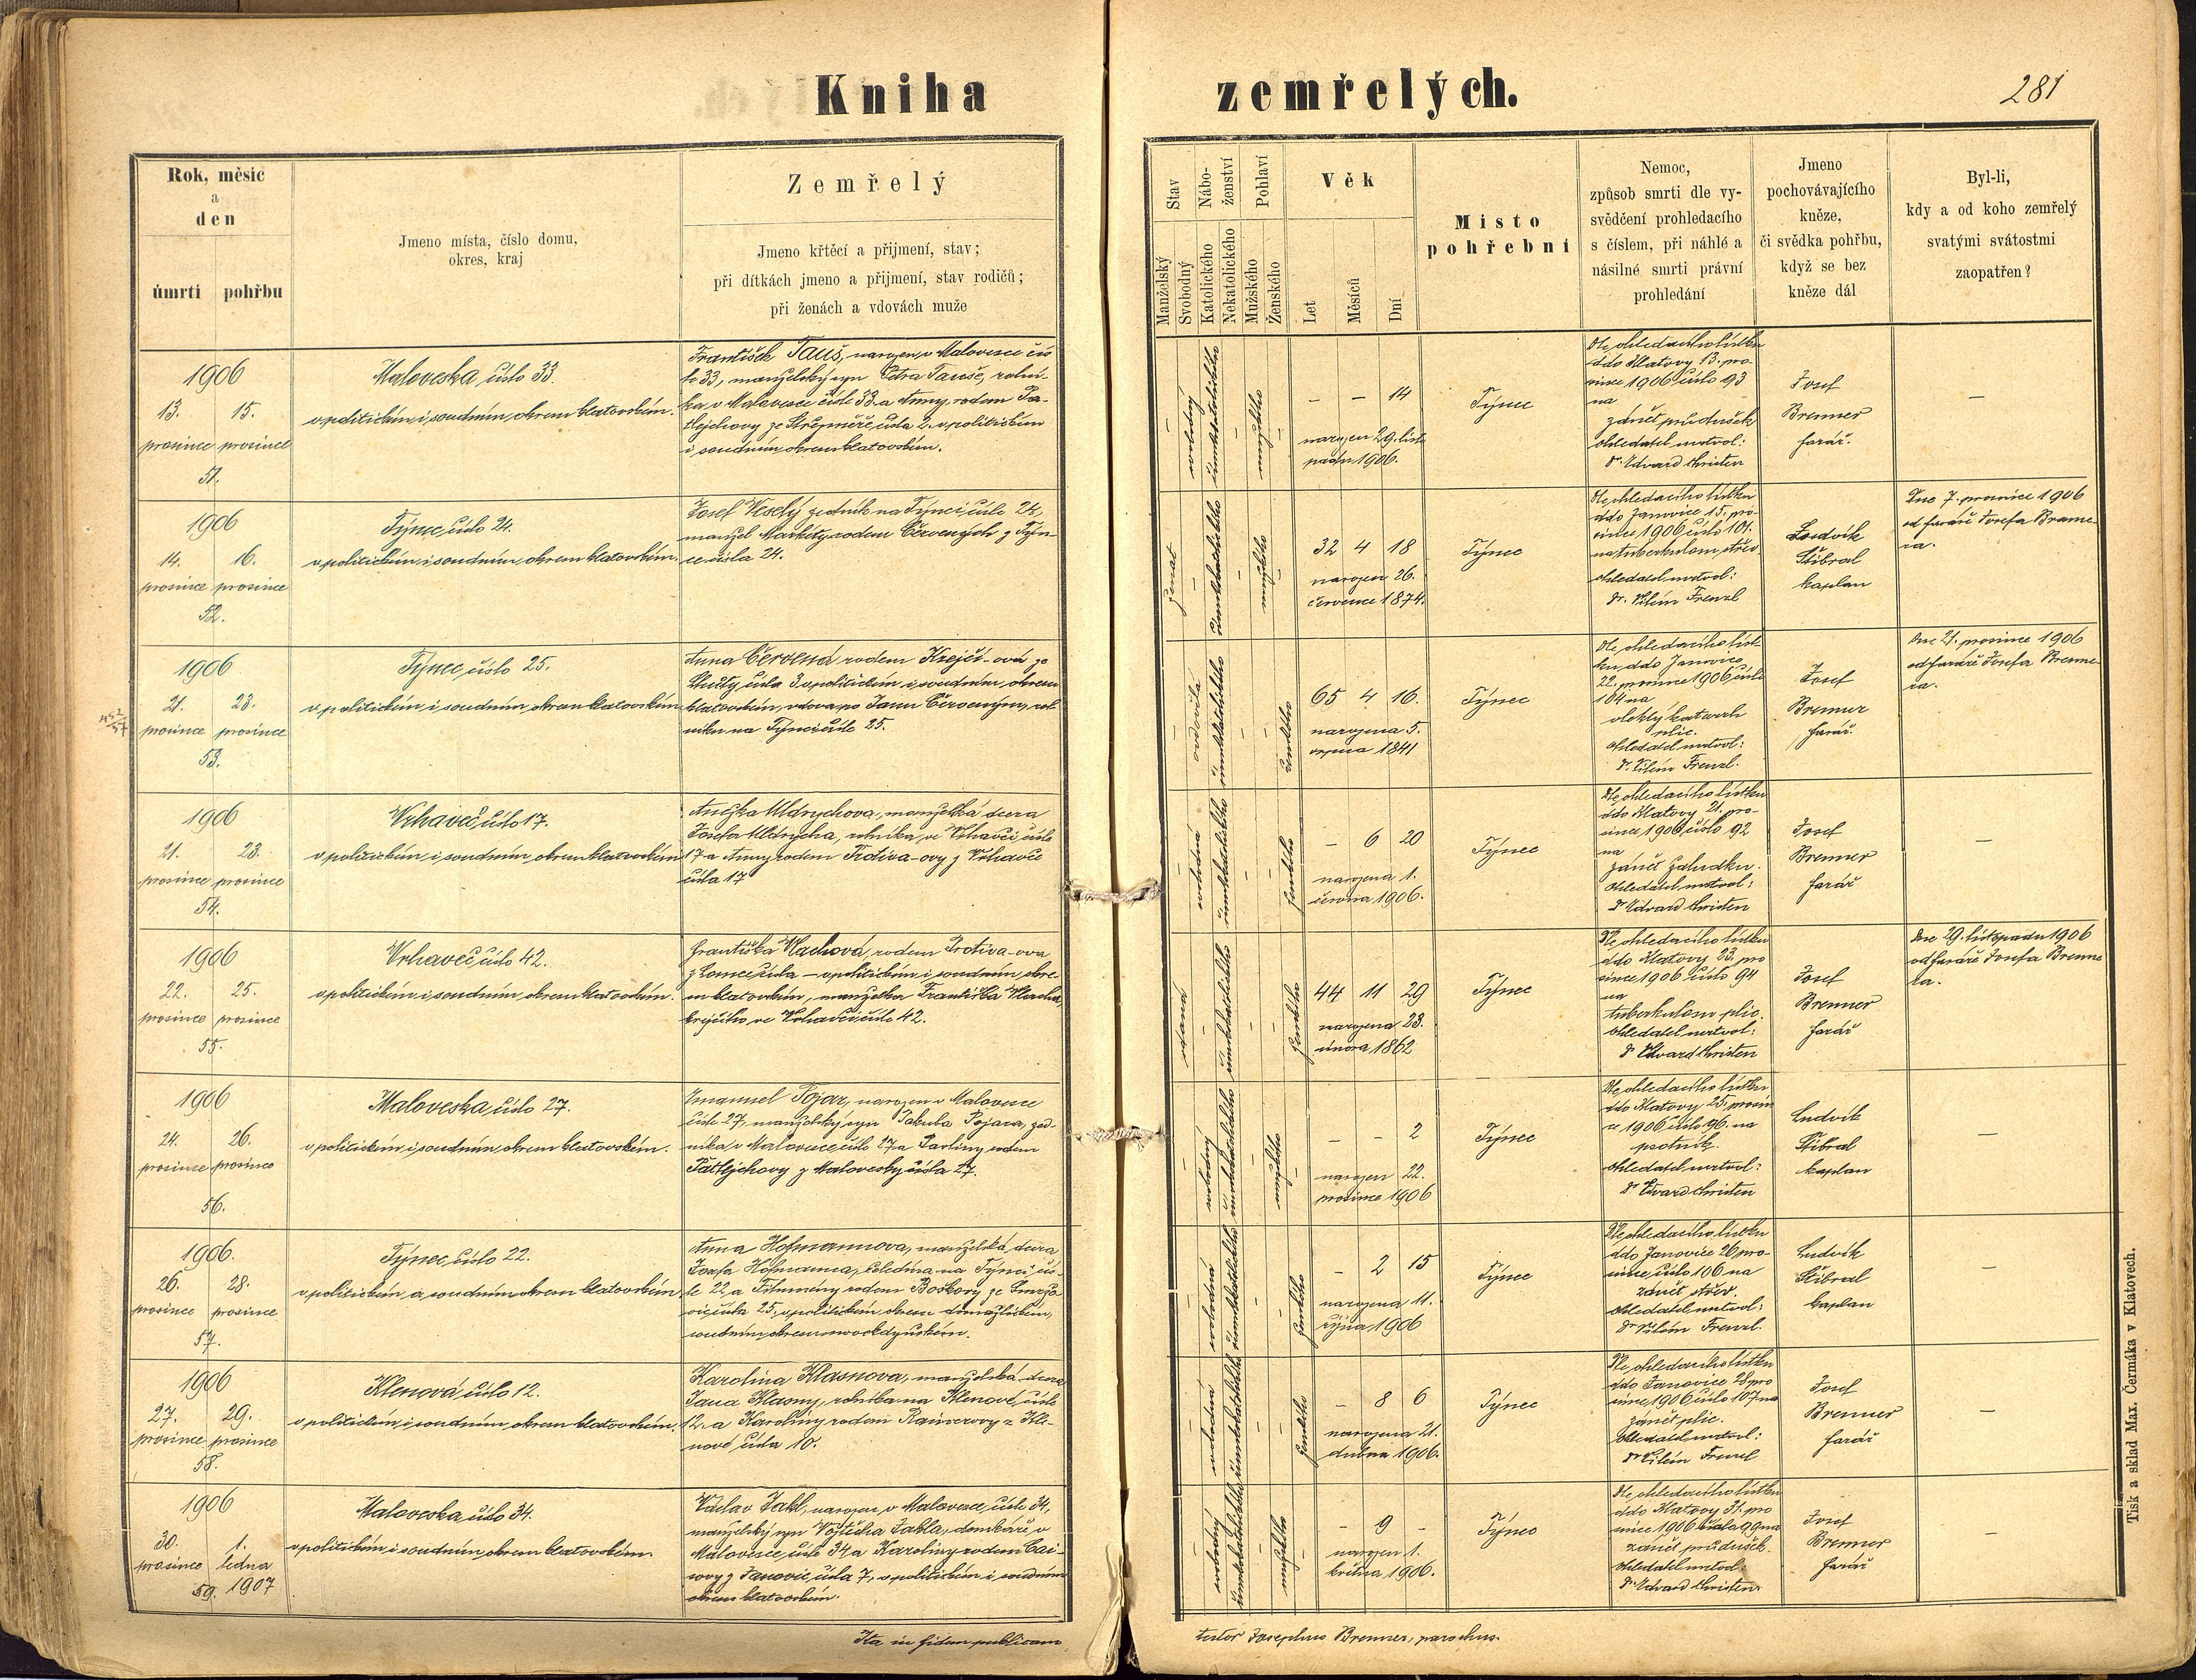 Kniha zemřelých.
281
Rok, měsíc
a
den
úmrtí pohřbu
Jmeno místa, číslo domu,
okres, kraj
Zemřelý
Jmeno křtěcí a přijmení, stav;
při dítkách jmeno a přijmení, stav rodičů;
při ženách a vdovách muže
Stav
Manželský
Svobodný
Nábo-
ženství
Katolického
Nekatolického
Pohlaví
Mužského
Ženského
Věk
Let
Měsíců
Dní
Místo
pohřební
Nemoc,
způsob smrti dle vy-
svědčení prohledacího
s číslem, při náhlé a
násilné smrti právní
prohledání
Jmeno
pochovávajícího
kněze,
či svědka pohřbu,
když se bez
kněze dál
Byl-li,
kdy a od koho zemřelý
svatými svátostmi
zaopatřen?
1906
13. 15.
prosince prosince
51.
Maloveska číslo 33.
v politickém i soudním okresu klatovském.
František Tauš, narozen v Malovesce čís
lo 33, manželský syn Petra Tauše, rolní-
ka v Malovesce čísle 33 a Anny rodem
čísla 2. v politickém
i soudním okresu klatovském.
svobodný
mužského
– – 14
narozen 29. listo
padu 1906.
Týnec
Dle ohledacího lístku
ddo Klatovy 13. pro-
since 1906 číslo 93
na
zánět průdušek
ohledatel mrtvol:
Dr. Edvard Christen
Josef
Brenner
farář.
–
1906
14. 16.
prosince prosince
52.
Týnec číslo 24.
v politickém i soudním okresu klatovském.
Josef Veselý na Týnci čísle 24,
manžel Markéty rodem Červených z Týn-
ce čísla 24.
ženat
mužského
32 4 18
narozen 26.
července 1874.
Týnec
Dle ohledacího lístku
ddo Janovice 15. pro-
since 1906 číslo 101.
na tuberkulosu střev
ohledatel mrtvol:
Dr. Vilém Frenzl
Ludvík
Stibral
kaplan
Dne 7. prosince 1906
od faráře Josefa Brenne-
ra.
452/57
1906
21. 23.
prosince prosince
53.
Týnec číslo 25.
v politickém i soudním okresu klatovském
Anna Červená rodem Krejčí-ová ze
čísla 3 v politickém i soudním okresu
klatovském, vdova po Janu Červeným, rol
níku na Týnci čísle 25.
ovdovělá
ženského
65 4 16.
narozena 5.
srpna 1841
Týnec
Dle ohledacího líst-
ku ddo Janovice
22. prosince 1906 číslo
104 na
vleklý katarrh
plic.
ohledatel mrtvol:
Dr. Vilém Frenzl.
Josef
Brenner
farář.
Dne 21. prosince 1906
od faráře Josefa Brenne-
ra.
1906
21. 23.
prosince prosince
54.
Vrhaveč číslo 17.
v politickém i soudním okresu klatovském
Anežka Uldrychova, manželská dcera
Josefa Uldrycha, rolníka, ve Vrhavči čísle
17 a Anny rodem Protiva-ovy z Vrhavče
čísla 17
svobodná
ženského
– 6 20
narozena 1.
června 1906.
Týnec
Dle ohledacího lístku
ddo Klatovy 21. pro-
since 1906 číslo 92
na
zánět žaludku.
ohledatel mrtvol:
Dr Edvard Christen
Josef
Brenner
farář
–
1906
22. 25.
prosince prosince
55.
Vrhaveč číslo 42.
v politickém i soudním okresu klatovském.
Františka Vlachová, rodem Protiva-ova
z Lomce čísla – v politickém i soudním okre-
su klatovském, manželka Františka Vlacha,
krejčího ve Vrhavči čísle 42.
vdaná
ženského
44 11 29
narozena 23.
února 1862
Týnec
Dle ohledacího lístku
ddo Klatovy 23. pro
since 1906 číslo 94
na
tuberkulosu plic.
ohledatel mrtvol:
Dr Edvard Christen
Josef
Brenner
farář
Dne 29. listopadu 1906
od faráře Josefa Brenne
ra.
1906
24. 26.
prosince prosince
56.
Maloveska číslo 27.
v politickém i soudním okresu klatovském.
Emanuel Pojar, narozen v Malovesce
čísle 27, manželský syn Jakuba Pojara,
níka v Malovesce čísle 27 a Pavlíny rodem
z Malovesky čísla 27.
svobodný
mužského
– – 2
narozen 22.
prosince 1906
Týnec
Dle ohledacího lístku
ddo Klatovy 25. prosin
ce 1906 číslo 96. na
psotník.
ohledatel mrtvol:
Dr Edvard Christen
Ludvík
Stibral
kaplan
–
1906.
26. 28.
prosince prosince
57.
Týnec číslo 22.
v politickém a soudním okresu klatovském
Anna Hofmannova, manželská dcera
Josefa Hofmanna, čeledína na Týnci čís-
le 22 a Filomény rodem
čísla 25, v politickém okresu domažlickém,
soudním okresu novokdyňském.
svobodná
ženského
– 2 15
narozena 11.
října 1906
Týnec
Dle ohledacího lístku
ddo Janovice 26. pro-
since, číslo 106 na
zánět střev.
ohledatel mrtvol:
Dr Vilém Frenzl.
Ludvík
Stibral
kaplan
–
1906
27. 29.
prosince prosince
58.
Klenová číslo 12.
v politickém i soudním okresu klatovském.
Karolina Klasnova, manželská dcera
Jana Klasny, rolníka na Klenové, čísle
12. a Karoliny rodem z Kle-
nové čísla 10.
svobodná
ženského
– 8 6
narozena 21.
dubna 1906.
Týnec
Dle ohledacího lístku
ddo Janovice 28 pro
since 1906 číslo 107 na
zánět plic.
ohledatel mrtvol:
Dr Vilém Frenzl
Josef
Brenner
farář
–
1906
30. 1.
prosince ledna
59. 1907
Maloveska číslo 34.
v politickém i soudním okresu klatovském.
Václav Jakl, narozen v Malovesce, čísle 34,
manželský syn Vojtěcha Jakla, domkáře v
Malovesce čísle 34 a Karoliny rodem
z Janovic čísla 7, v politickém i soudním
okresu klatovském.
svobodný
mužského
– 9 –
narozen 1.
května 1906.
Týnec
Dle ohledacího lístku
ddo Klatovy 31. pro
since 1906 číslo 99 na
zánět průdušek.
ohledatel mrtvol:
Dr Edvard Christen
Josef
Brenner
farář
–
Ita in fidem publicam
testor Josephus Brenner, parochus.
Tisk a sklad Max. Čermáka v Klatovech.